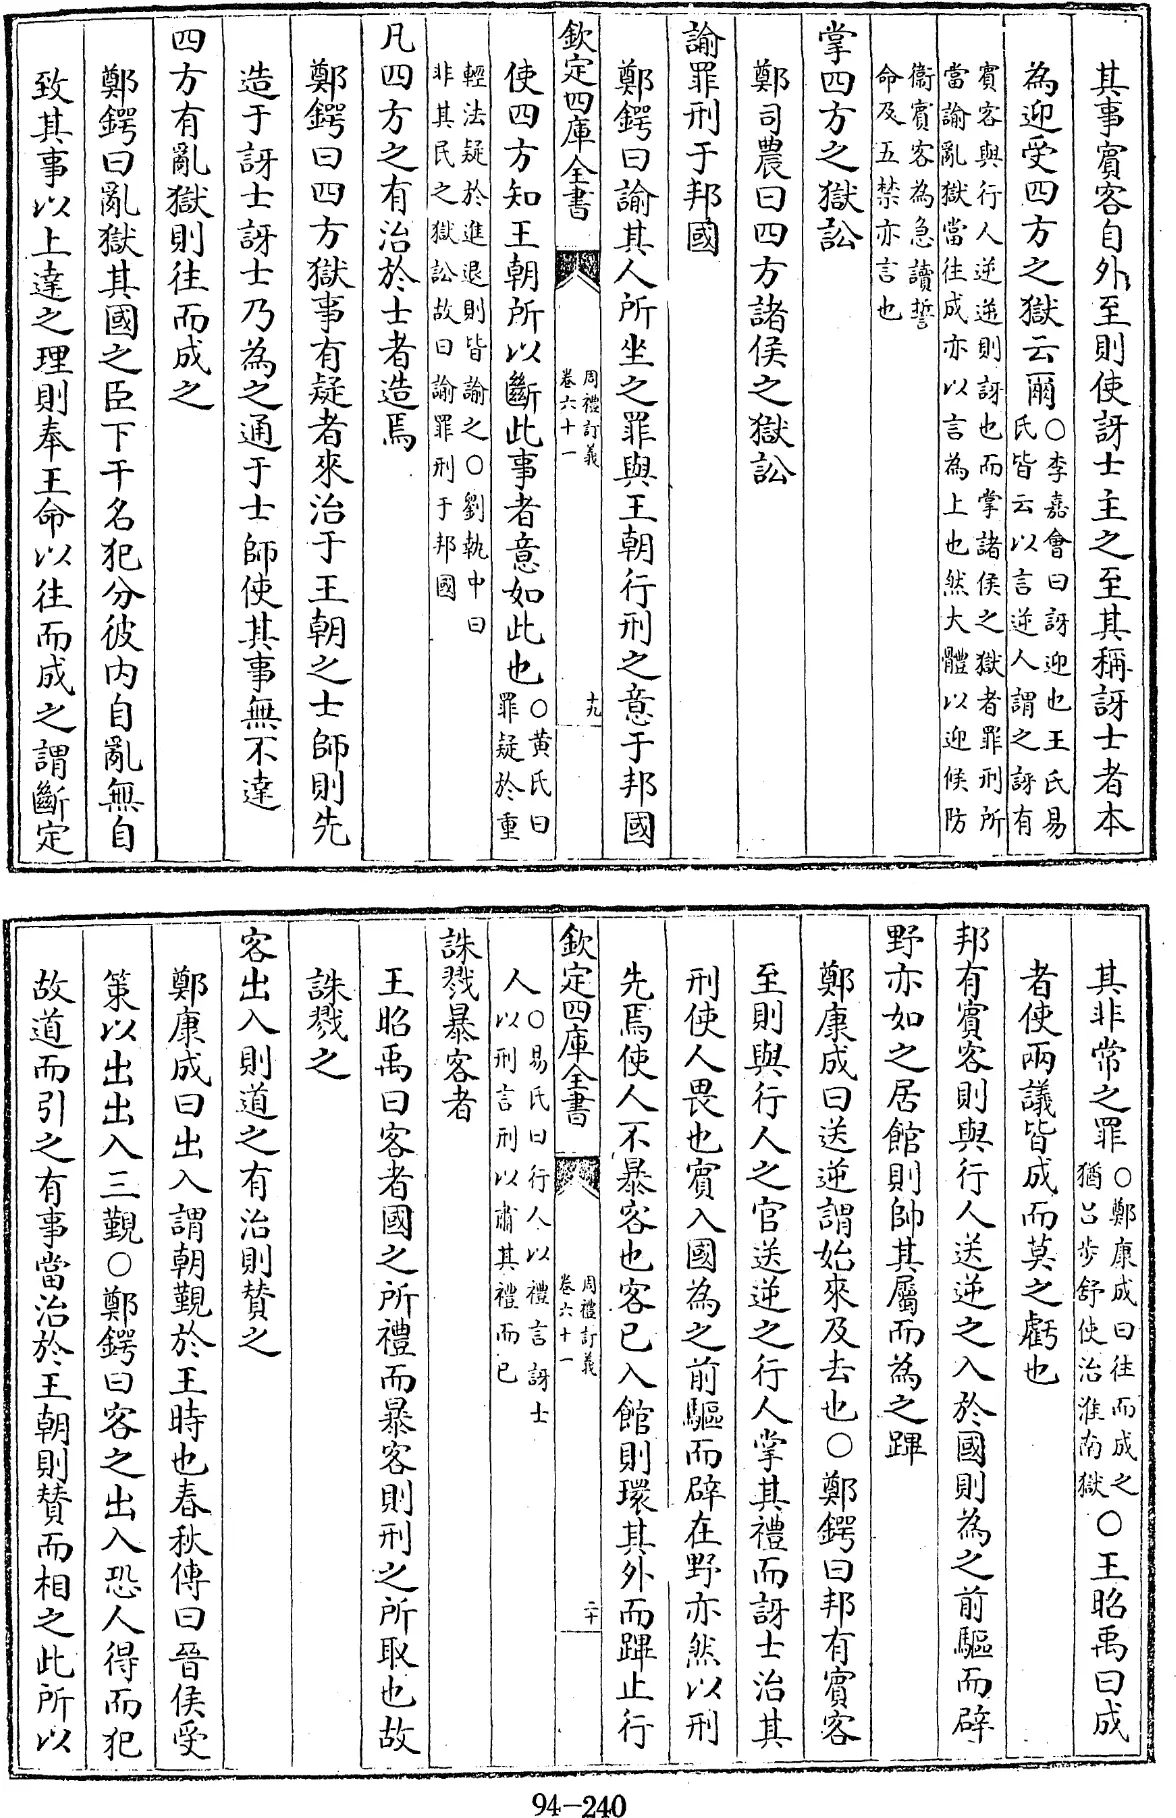 其事賓客自外至則使訝士主之至其稱訝士者本
為迎受四方之獄云爾○李嘉會曰訝迎也王氏易
氏皆云以言逆人謂之訝有
賓客與行人逆逆則訝也而掌諸侯之獄者罪刑所
當諭亂獄當往成亦以言為上也然大體以迎候防
衞賓客為急讀誓
命及五禁亦言也
掌四方之獄訟
鄭司農曰四方諸侯之獄訟
諭罪刑于邦國
鄭鍔曰諭其人所坐之罪與王朝行刑之意于邦國
欽定四庫全書
周禮訂義
卷六十一
十九
使四方知王朝所以斷此事者意如此也○黃氏曰
罪疑於重
輕法疑於進退則皆諭之○劉執中曰
非其民之獄訟故曰諭罪刑于邦國
凡四方之有治於士者造焉
鄭鍔曰四方獄事有疑者來治于王朝之士師則先
造于訝士訝士乃為之通于士師使其事無不達
四方有亂獄則往而成之
鄭鍔曰亂獄其國之臣下干名犯分彼内自亂無自
致其事以上達之理則奉王命以往而成之謂斷定
其非常之罪○鄭康成曰往而成之
猶吕步舒使治淮南獄○王昭禹曰成
者使兩議皆成而莫之虧也
邦有賓客則與行人送逆之入於國則為之前驅而辟
野亦如之居館則帥其屬而為之蹕
鄭康成曰送逆謂始來及去也○鄭鍔曰邦有賓客
至則與行人之官送逆之行人掌其禮而訝士治其
刑使人畏也賓入國為之前驅而辟在野亦然以刑
先焉使人不暴客也客已入館則環其外而蹕止行
欽定四庫全書
周禮訂義
卷六十一
二十
人○易氏曰行人以禮言訝士
以刑言刑以肅其禮而已
誅戮暴客者
王昭禹曰客者國之所禮而暴客則刑之所取也故
誅戮之
客出入則道之有治則贊之
鄭康成曰出入謂朝覲於王時也春秋傳曰晉侯受
策以出出入三覲○鄭鍔曰客之出入恐人得而犯
故道而引之有事當治於王朝則贊而相之此所以
94-240